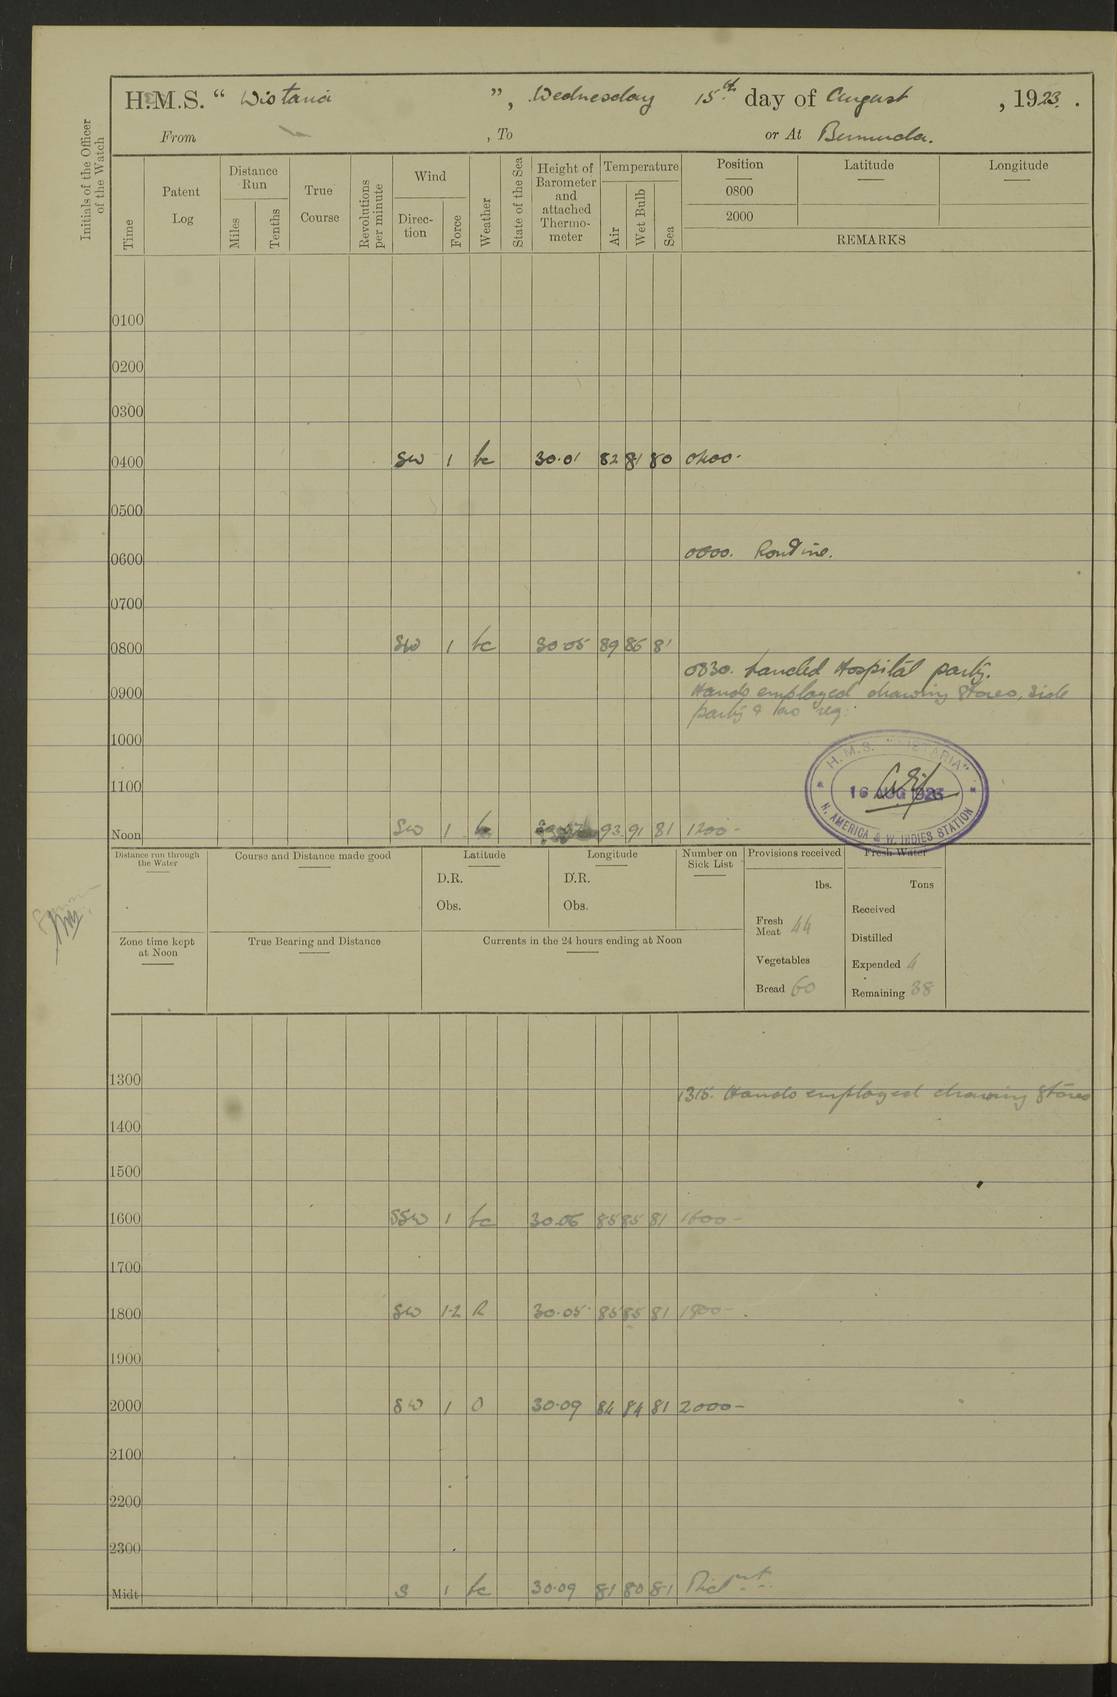 H.M.S. “ Wistaria ”, Wednesday 15th day of August, 1923.
From , To or At Bermuda.
Initials of the Officer of the Watch
Time
Patent Log
Distance Run
Miles
Tenths
True Course
Revolutions per minute
Wind
Direc-tion
Force
Weather
State of the Sea
Height of Barometer and attached Thermo-meter
Temperature
Air
Wet Bulb
Sea
Position Latitude Longitude
0800
2000
REMARKS
0100
0200
0300
0400 SW 1 bc 30.01 82 81 80 0400.
0500
0600 0600. Routine.
0700
0800 SW 1 bc 30.05 89 85 81
0830. Landed Hospital party.
0900 Hands employed drawing Stores, side
party &
1000
H.M.S. "WISTARIA"
16 AUG 1923
N. AMERICA & W. INDIES STATION
1100
Noon SW 1 93 91 81 1200 -
Distance run through the Water
Course and Distance made good
Latitude
D.R.
Obs.
Longitude
D.R.
Obs.
Number on Sick List
Provisions received
lbs.
Fresh Meat 44
Vegetables
Bread 60
Fresh Water
Tons
Received
Distilled
Expended 4
Remaining 38
Zone time kept at Noon
True Bearing and Distance
Currents in the 24 hours ending at Noon
1300 1315. Hands employed drawing Stores
1400
1500
1600 SSW 1 bc 30.06 85 85 81 1600 -
1700
1800 SW 1-2 R 30.05 85 85 81 1800 -
1900
2000 SW 1 O 30.09 84 84 81 2000 -
2100
2200
2300
Midt S 1 bc 30.09 81 80 81